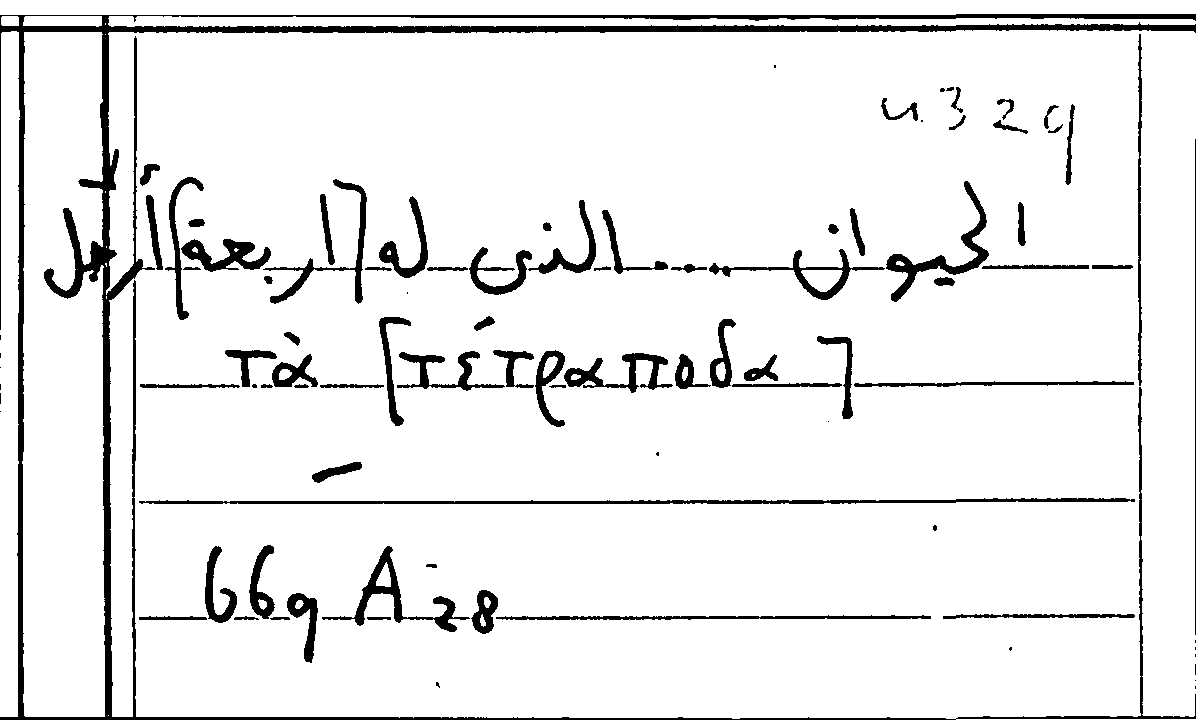 u329
الحيوان .... الذى له ⌈اربعة⌉ أرجل
τὰ ⌈τέτραποδα⌉
669 A 28